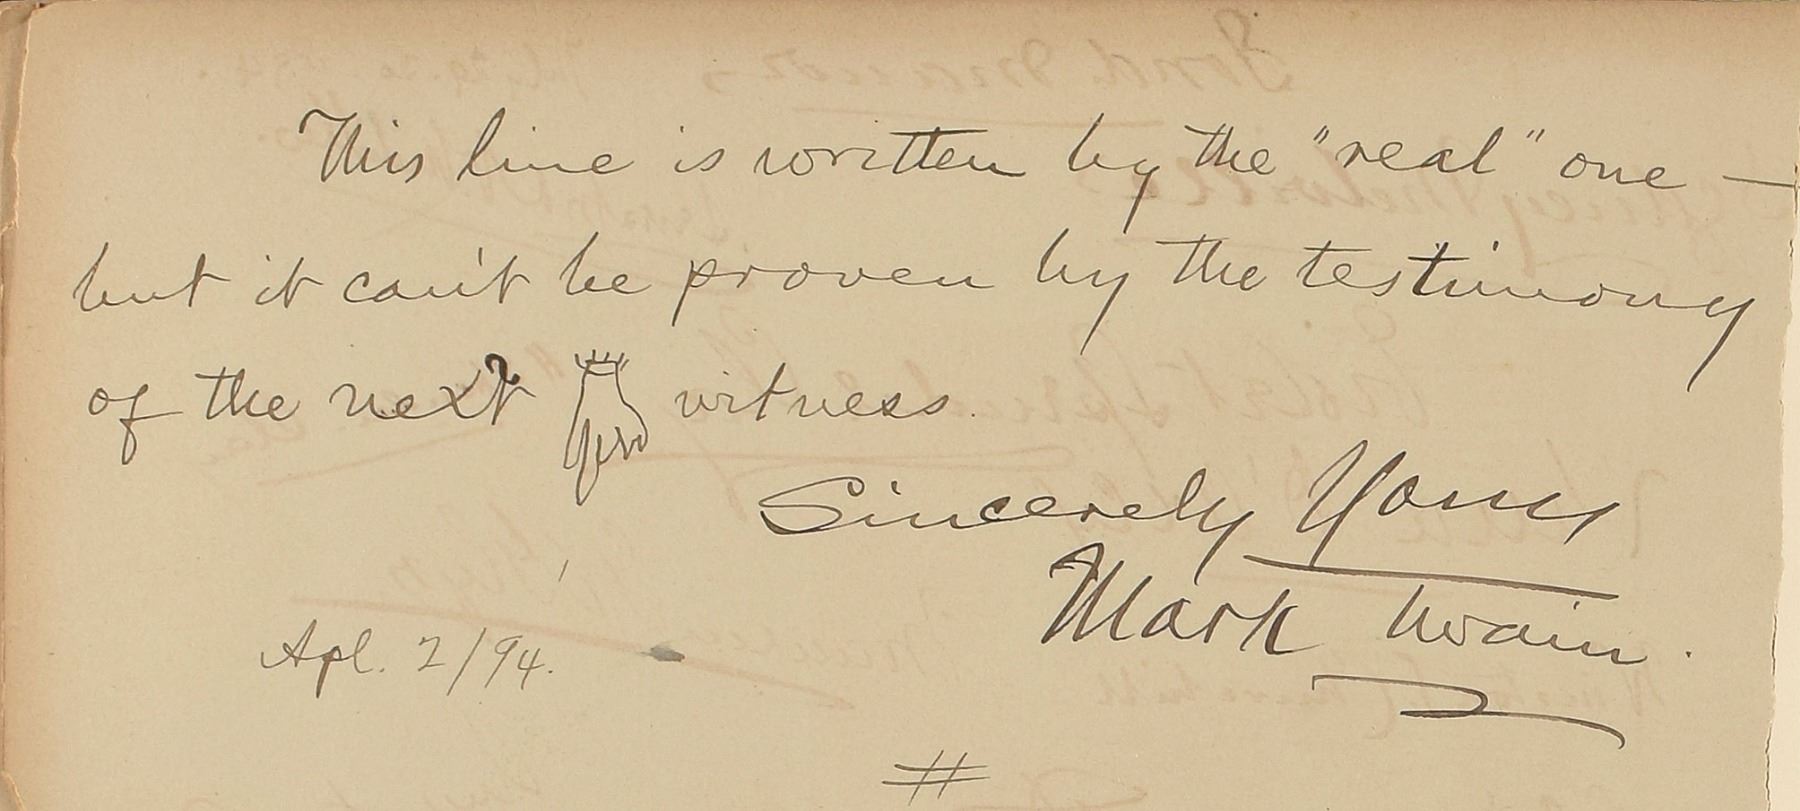 This line is written by the "real" one —
but it can't be proven by the testimony
of the next witness.
Sincerely Yours
Mark Twain.
Apl. 2/94.
#